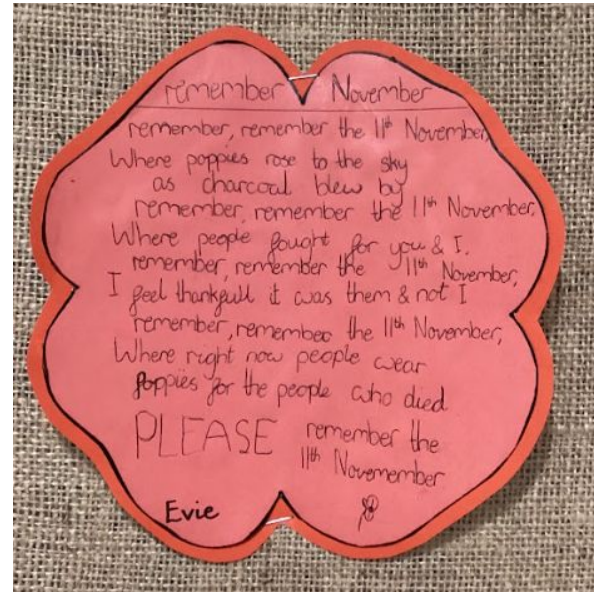 remember November
remember, remember the 11th November,
Where poppies rose to the sky
as charcoal blew by
remember, remember the 11th November,
Where people fought for you & I.
remember, remember the 11th November,
I feel thankfull it was them & not I
remember, remember the 11th November,
Where right now people wear
poppies for the people who died
PLEASE remember the
11th Novemember
Evie